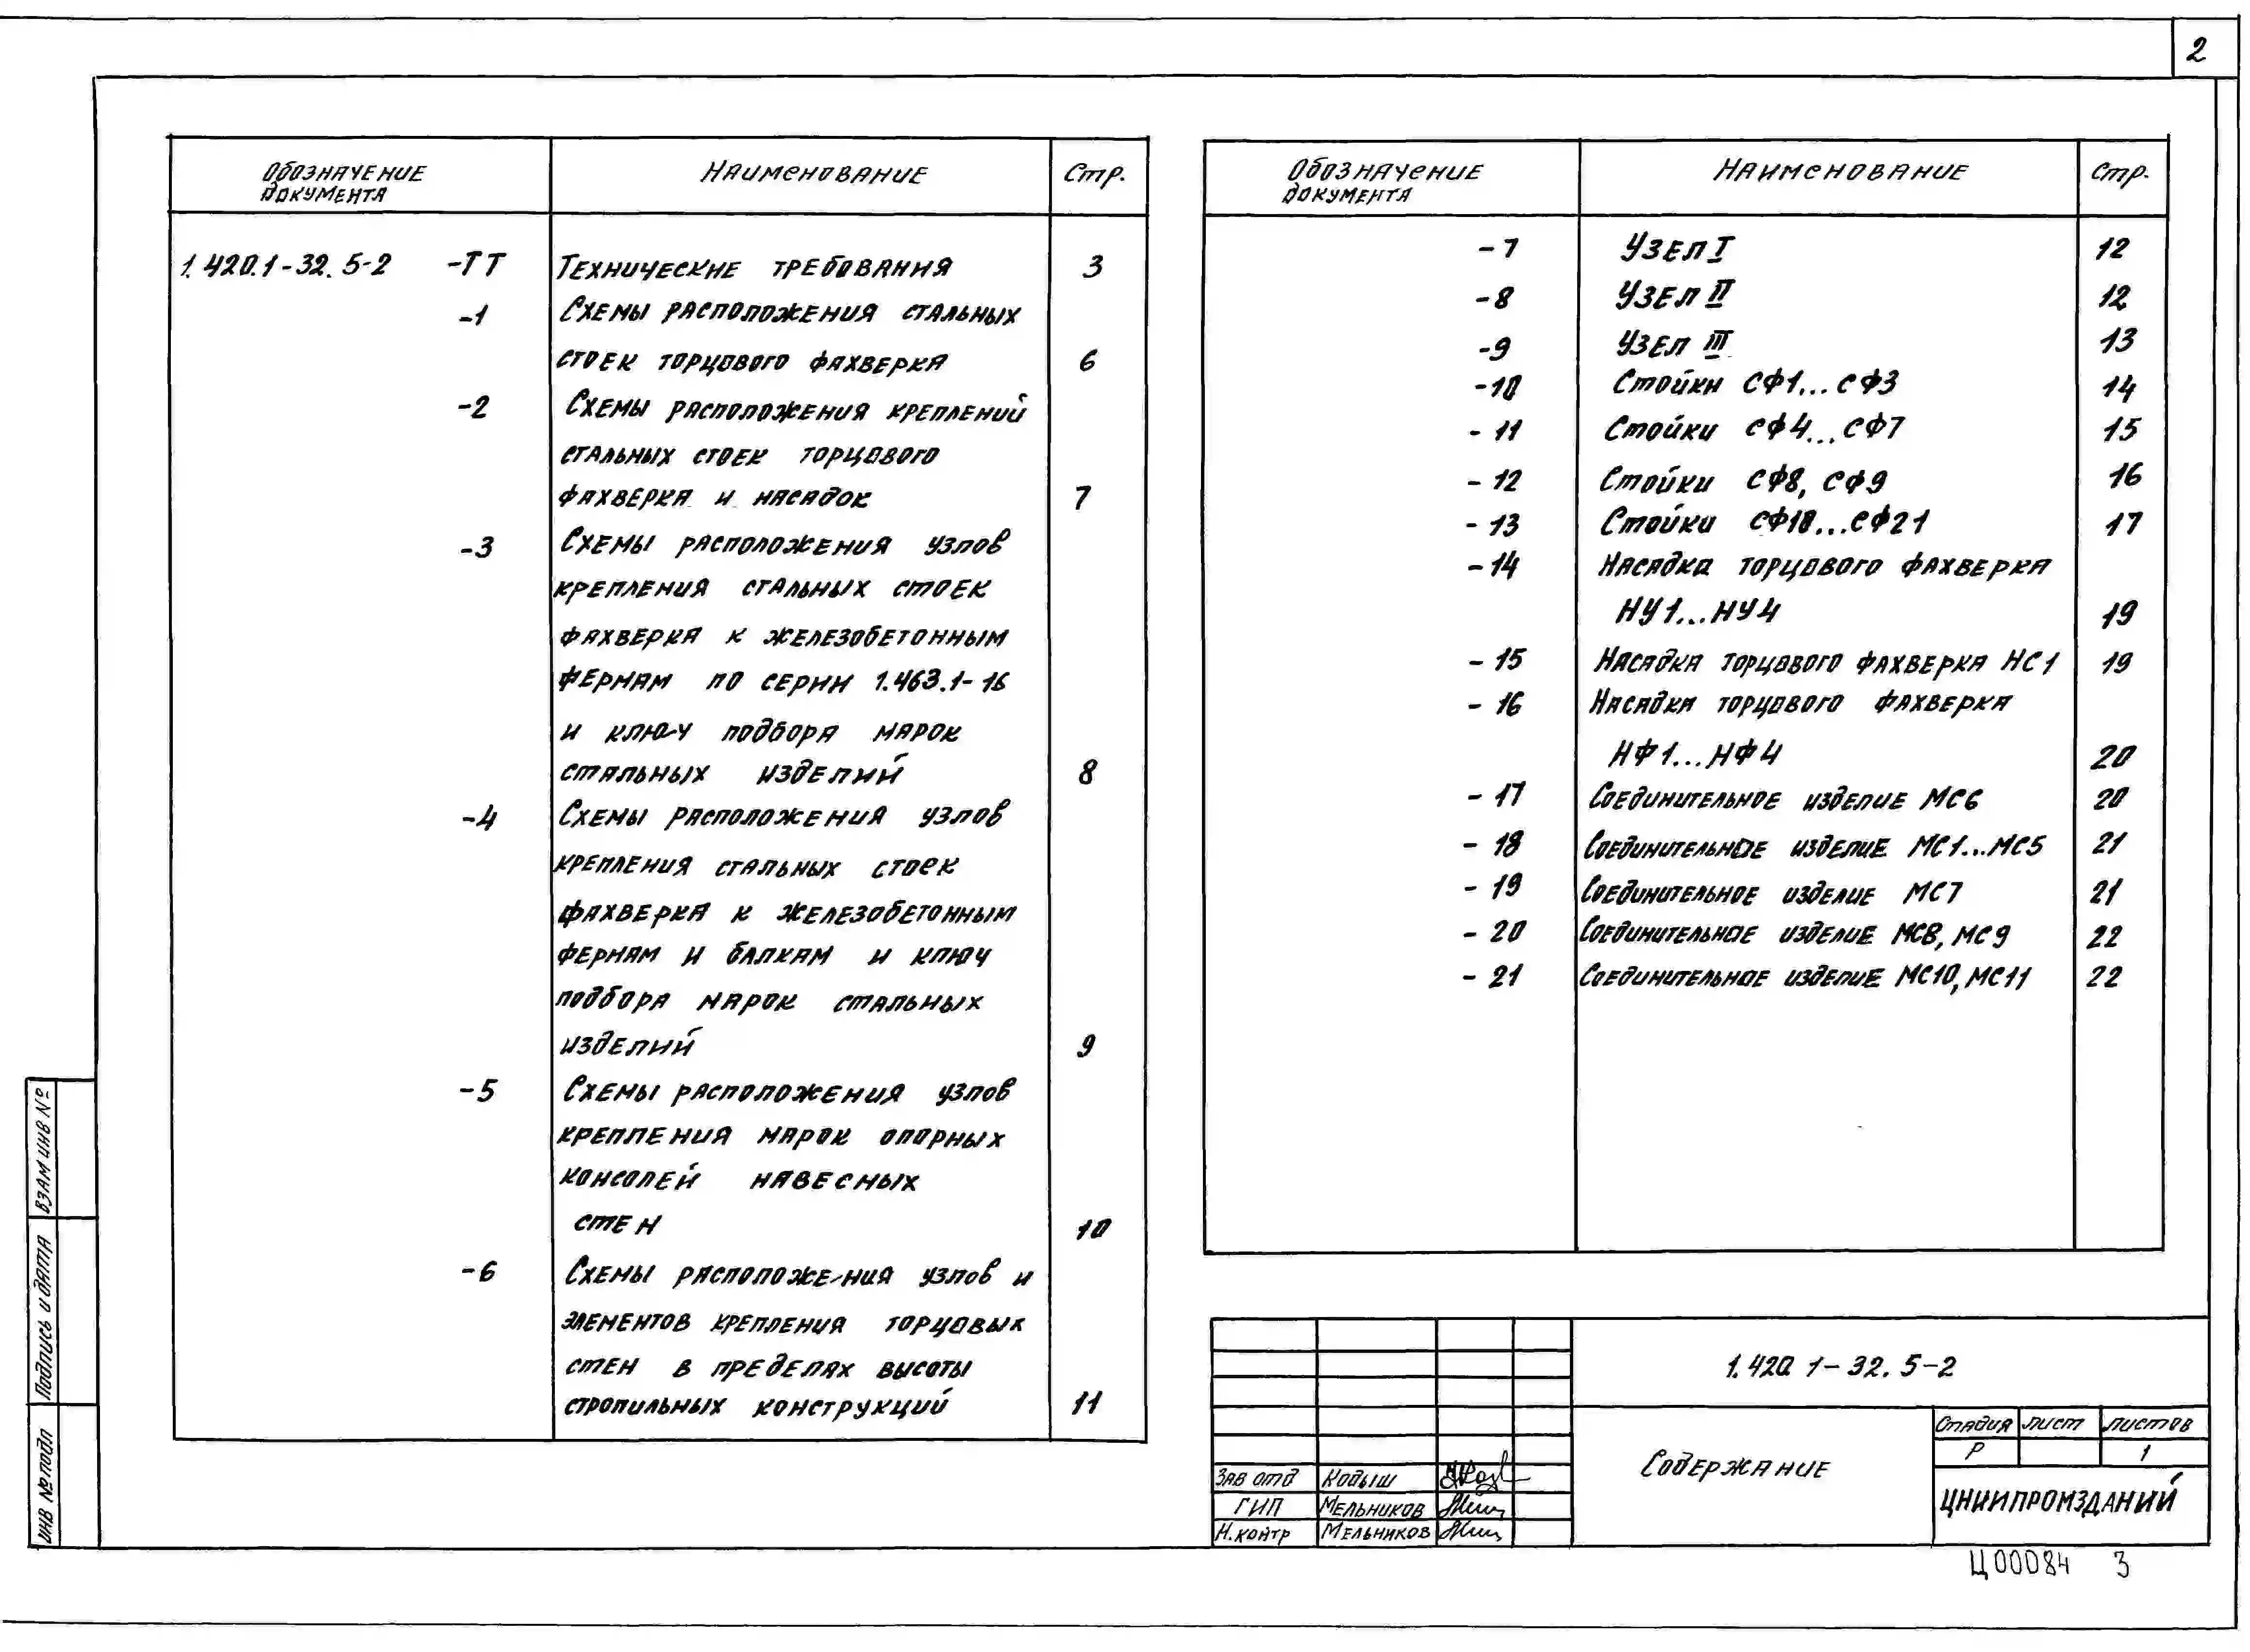 2
Обозначение документа Наименование Стр.
1.420.1-32.5-2 -ТТ Технические требования 3
-1 Схемы расположения стальных
стоек торцового фахверка 6
-2 Схемы расположения креплений
стальных стоек торцового
фахверка и насадок 7
-3 Схемы расположения узлов
крепления стальных стоек
фахверка к железобетонным
фермам по серии 1.463.1-16
и ключ подбора марок
стальных изделий 8
-4 Схемы расположения узлов
крепления стальных стоек
фахверка к железобетонным
фермам и балкам и ключ
подбора марок стальных
изделий 9
-5 Схемы расположения узлов
крепления марок опорных
консолей навесных
стен 10
-6 Схемы расположения узлов и
элементов крепления торцовых
стен в пределах высоты
стропильных конструкций 11
Обозначение документа Наименование Стр.
-7 Узел I 12
-8 Узел II 12
-9 Узел III 13
-10 Стойки СФ1...СФ3 14
-11 Стойки СФ4...СФ7 15
-12 Стойки СФ8, СФ9 16
-13 Стойки СФ10...СФ21 17
-14 Насадка торцового фахверка
НУ1...НУ4 19
-15 Насадка торцового фахверка НС1 19
-16 Насадка торцового фахверка
НФ1...НФ4 20
-17 Соединительное изделие МС6 20
-18 Соединительное изделие МС1...МС5 21
-19 Соединительное изделие МС7 21
-20 Соединительное изделие МС8, МС9 22
-21 Соединительное изделие МС10, МС11 22
1.420.1-32.5-2
Содержание
Стадия Лист Листов
Р 1
ЦНИИПРОМЗДАНИЙ
Зав отд Кодыш
ГИП Мельников
Н.контр Мельников
Взам инв №
Подпись и дата
Инв № подл
Ц00084 3